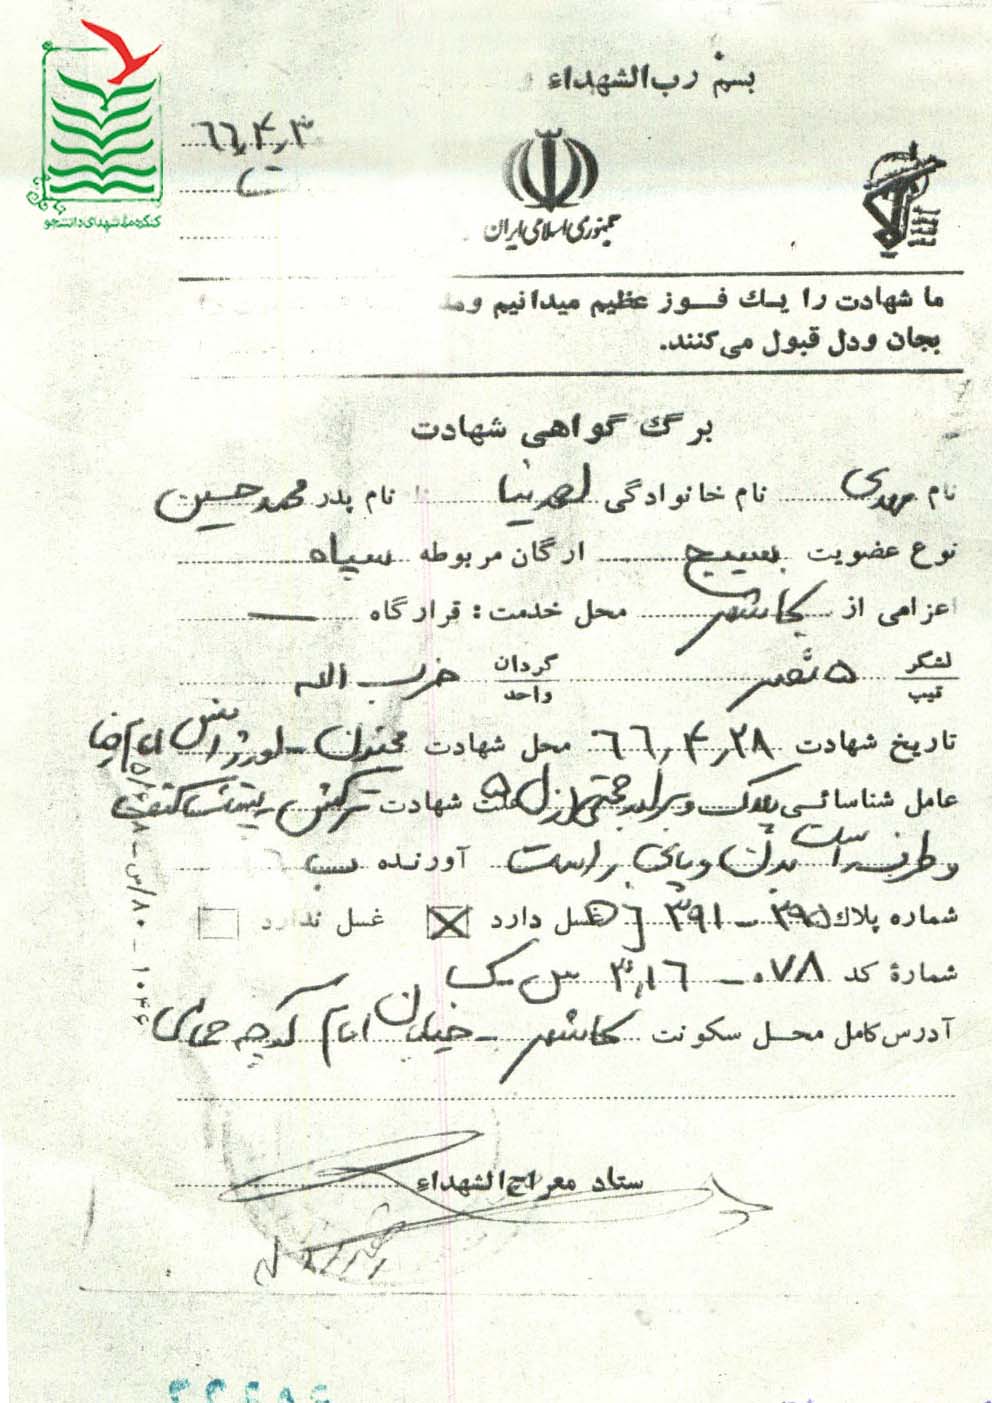 بسم رب الشهداء
۶۶,۴,۳
کنگره ملی شهدای دانشجو
جمهوری اسلامی ایران
ما شهادت را یک فوز عظیم میدانیم وما
بجان و دل قبول می‌کنند.
برگ گواهی شهادت
نام مهدی نام خانوادگی احمدنیا نام پدر محمدحسین
نوع عضویت بسیج ارگان مربوطه سپاه
اعزامی از کاشمر محل خدمت : قرارگاه —
لشگر تیپ ۵ نصر گردان واحد حزب الله
تاریخ شهادت ۶۶,۴,۲۸ محل شهادت اورژانس امام رضا
عامل شناسائی پلاک و برادر علت شهادت ترکش
و طرف راست بدن و پای راست آورنده
شماره پلاک ۳۹۵ – ۳۹۱ غسل دارد ☒ غسل ندارد ☐
شمارهٔ کد ۰۷۸
آدرس کامل محل سکونت کاشمر – خیابان امام کوچه
ستاد معراج الشهداء